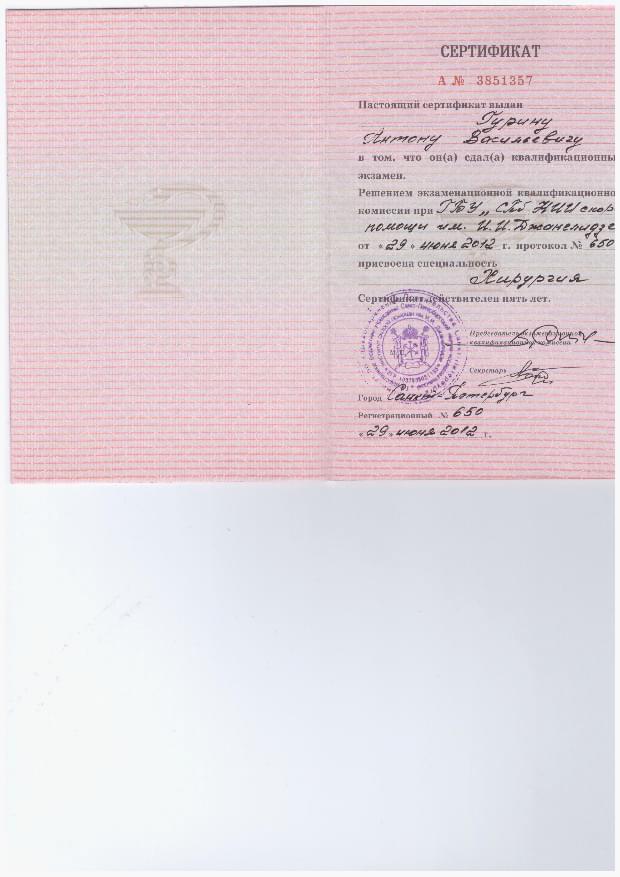 СЕРТИФИКАТ
А № 3851357
Настоящий сертификат выдан
Гурину
Антону Васильевичу
в том, что он(а) сдал(а) квалификационны
экзамен.
Решением экзаменационной квалификационно
комиссии при ГБУ „СПб НИИ скор
помощи им. И.И. Джанелидзе
от «29» июня 2012 г. протокол № 650
присвоена специальность
Хирургия
Сертификат действителен пять лет.
Председатель экзаменационной
квалификационной комиссии
Секретарь
М.П.
Город Санкт-Петербург
Регистрационный № 650
«29» июня 2012 г.